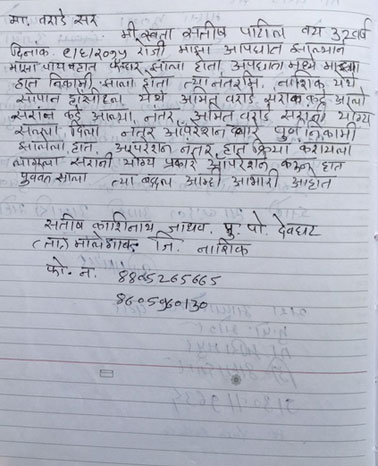 मा. वराडे सर
मी स्वता सतीष पाटील वय ३२ वर्ष
दिनांक ९/६/२०१५ रोजी माझा अपघात झाल्याने
माझा पाय व हात फॅक्चर झाला होता. अपघाता मुळे माझा
हात निकामी झाला होता त्या नंतर मी नाशिक येथे
सोपान हॉस्पीटल येथे अमित वराडे सरांकडे आलो
सरांन कडे आल्या नंतर अमित वराडे सरांनी योग्य
सल्ला दिला नंतर ऑपरेशन द्वारे पुर्ण निकामी
झालेला हात. ऑपरेशन नंतर हात क्रिया करायला
लागला सरांनी योग्य प्रकारे ऑपरेशन करून हात
पुर्ववत झाला त्या बद्दल आम्ही आभारी आहोत
सतीष काशिनाथ जाधव. मु. पो. देवघट
(ता.) मालेगाव जि. नाशिक
फो. न. 8805265665
8605960130